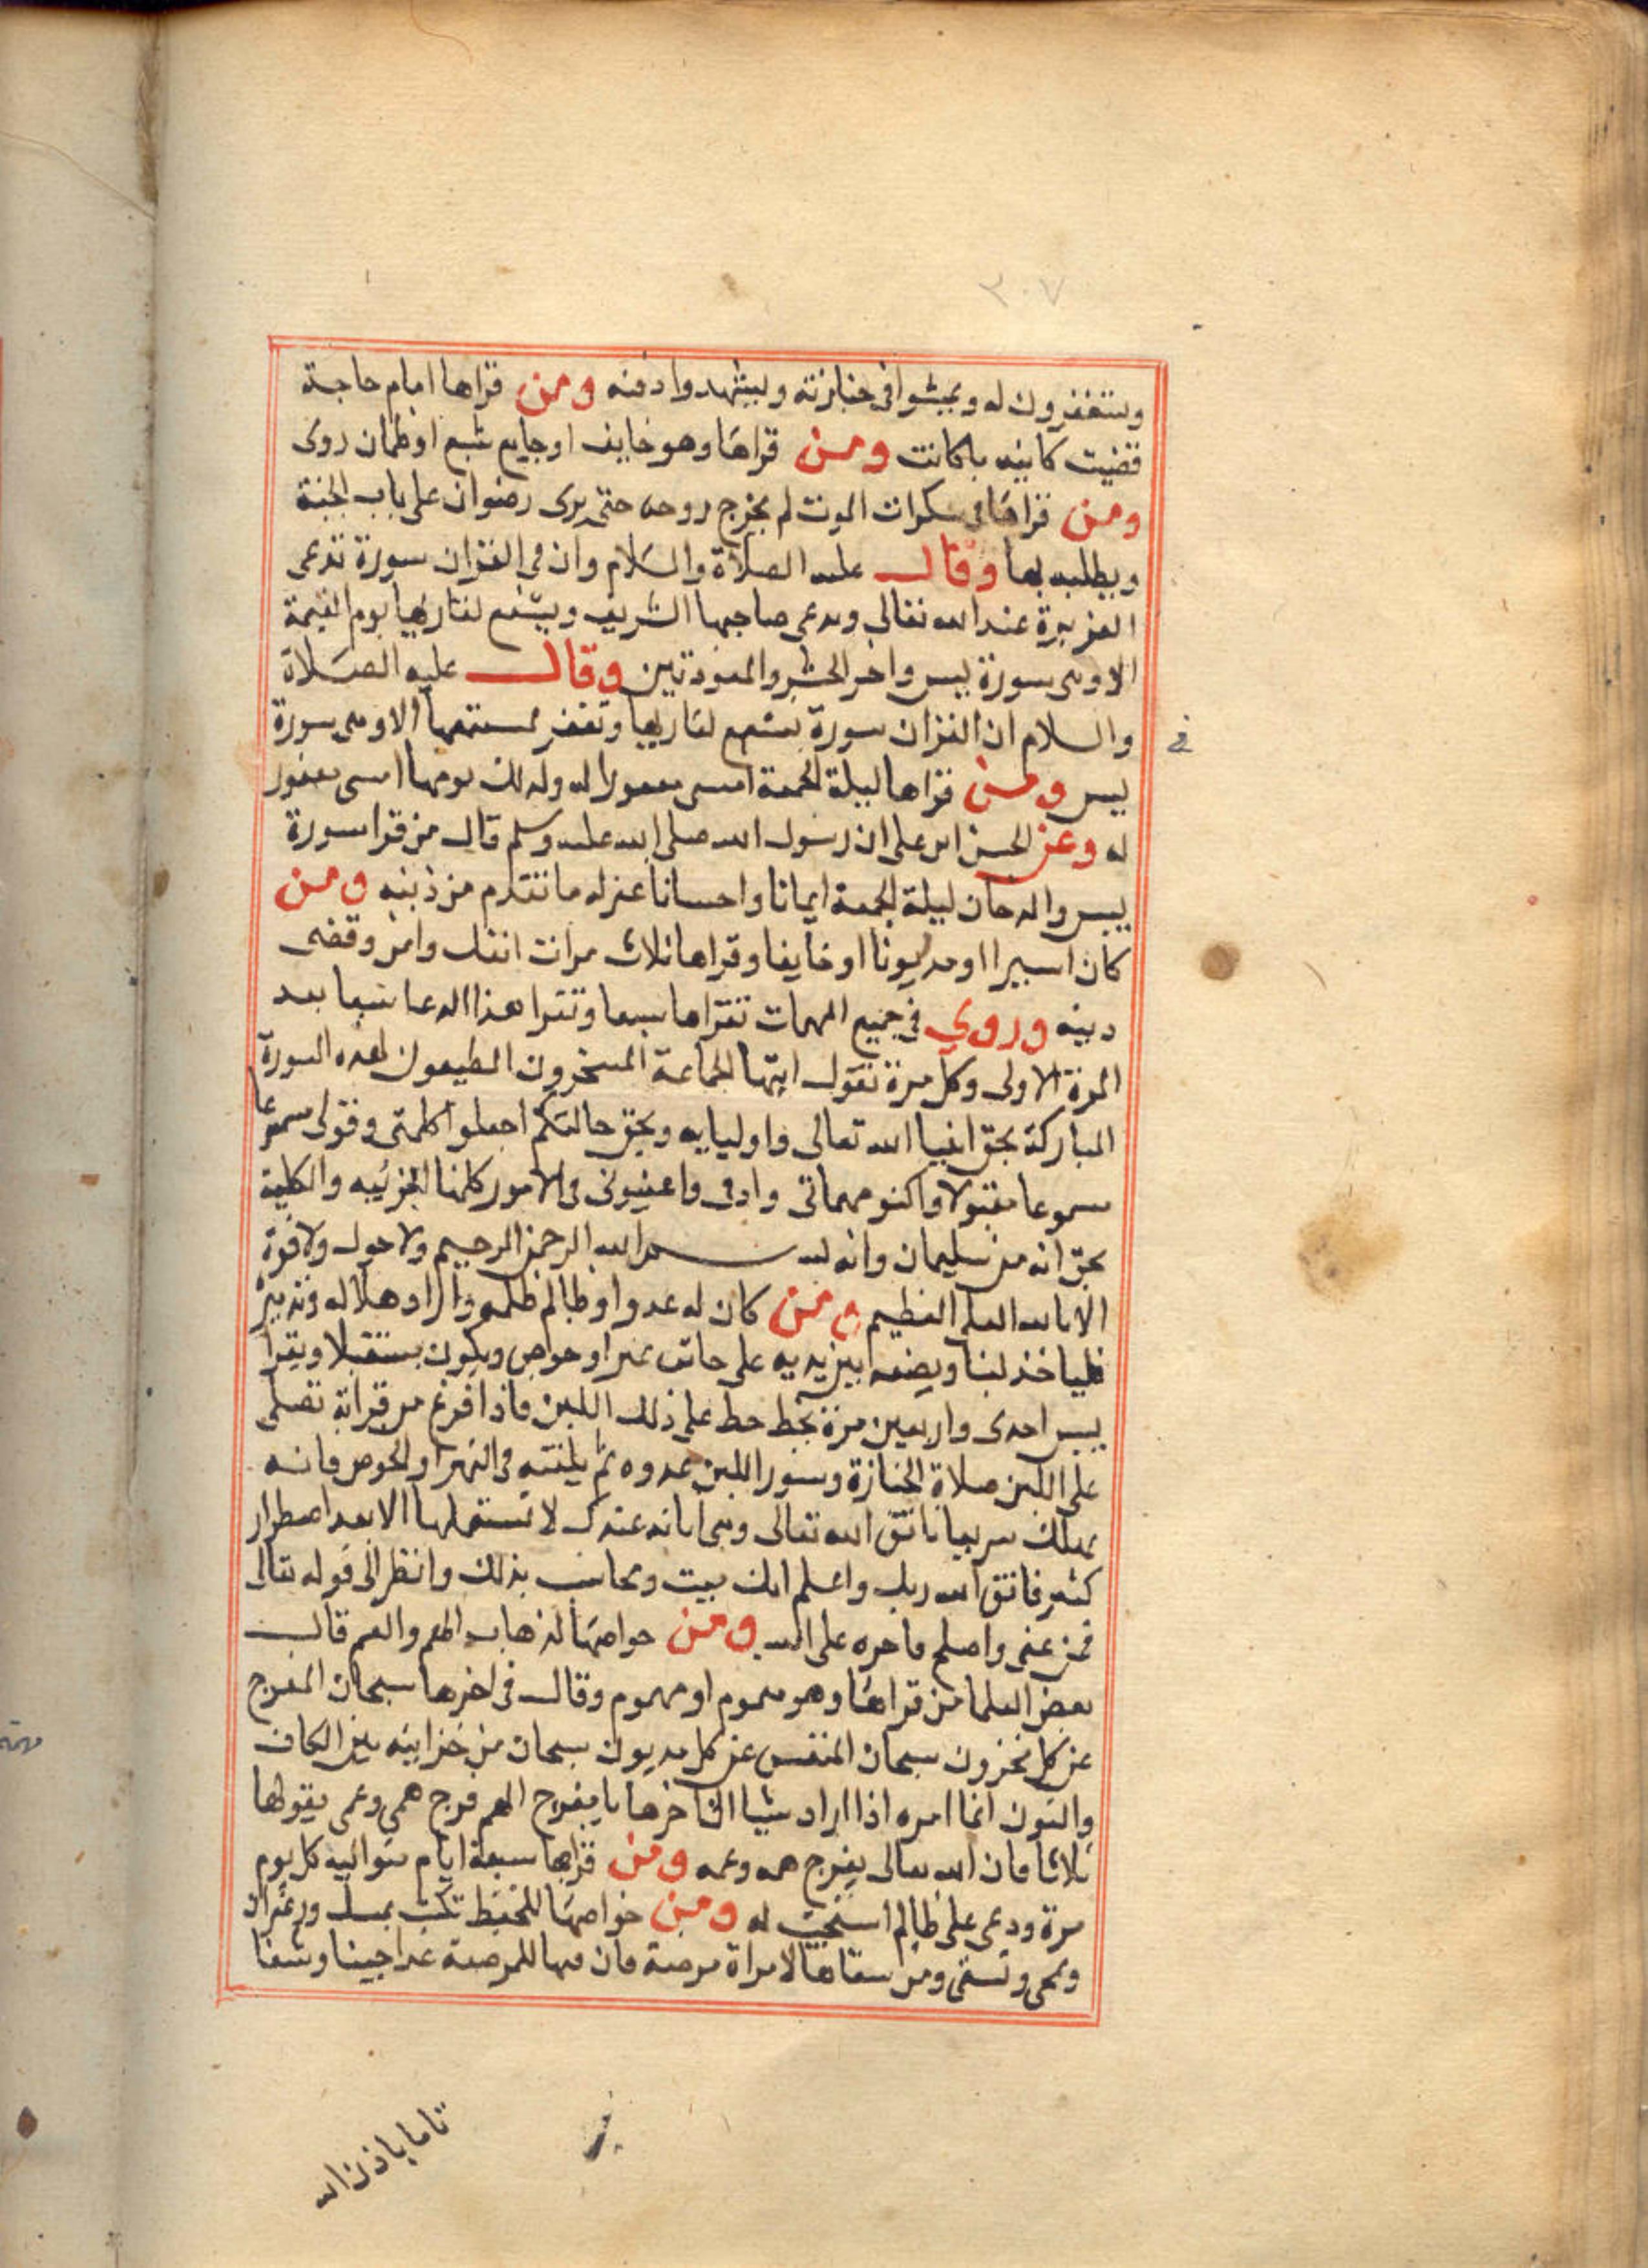 ٢٠٧
ويستغفرون له ويمشوا في جنازته ويشهدوا دفنه ومن قراها امام حاجة
قضيت كاينه ما كانت ومن قراها وهو خايف او جايع شبع او ظمان روى
ومن قراها في سكرات الموت لم يخرج روحه حتى يرى رضوان على باب الجنة
وبطلبه بها وقال عليه الصلاة والسلام وان في القران سورة تدعى
العزيزة عند الله تعالى ويدعى صاحبها الشريف ويشفع لقاريها يوم القيمة
الا وهى سورة يس واخر الحشر والمعوذتين وقال عليه الصلاة
والسلام ان القران سورة تشفع لقاريها وتغفر لمستمعها الا وهى سورة
في
يس ومن قراها ليلة الجمعة امسى مغفورا له وكذلك يومها امسى مغفور
له وعن الحسن ابن على ان رسول الله صلى الله عليه وسلم قال من قرا سورة
يس والدخان ليلة الجمعة ايمانا واحسانا غفر له ما تقدم من ذنبه ومن
كان اسيرا او مديونا او خايفا وقراها ثلاث مرات انفك وامن وقضى
دينه وروي في جميع المهمات تقراها سبعا وتقرا هذا الدعا سبعا بعد
المرة الاولى وكل مرة تقول ايتها الجماعة المسخرون المطيعون لهذه السورة
المباركة بحق انبيا الله تعالى واوليايه وبحق حالتكم اجعلوا كلمتى وقولى سموعا
مسموعا مقبولا واكفوا مهماتى واعينونى فى الامور كلها الجزئيه والكلية
بحق انه من سليمان وانه بسم الله الرحمن الرحيم ولا حول ولا قوة
الا بالله العلى العظيم ومن كان له عدوا وظالم ظلمه واراد هلاكه وتدميره
فلياخذ لبنا ويضعه بين يديه على حانت نهر او حوض ويكون مستقبلا ويقرا
يس احدى واربعين مرة يخط خط على ذلك اللبن فاذا فرغ من قراته تصلى
على اللبن صلاة الجنازة وتصور اللبن عدوه ثم يلقته فى النهر او الحوض فانه
يهلك سريعا فاتق الله تعالى وهى امانه عندك لا تستعملها الا بعد اضطرار
كثير فاتق الله ربك واعلم انك ميت ومحاسب بذلك وانظر الى قوله تعالى
فمن عفى واصلح فاجره على الله ومن خواصها لذهاب الهم والغم قال
بعض العلما من قراها وهو مغموم او مهموم وقال فى اخرها سبحان المفرج
عن كل محزون سبحان المنفس عن كل مديون سبحان من خزاينه بين الكاف
والنون انما امره اذا اراد شيا الى اخرها يا مفرج الهم فرج همى وغمى يقولها
ثلاثا فان الله تعالى يفرج همه وغمه ومن قراها سبعة ايام متواليه كل يوم
مرة ودعى على ظالم استجيب له ومن خواصها للحفظ تكتب بمسك وزعفران
وتمحى وتسقى ومن سقاها لامراة مرضعة فان فيها للمرضعة غدا جيدا وشفا
تاما باذن الله
مهمة